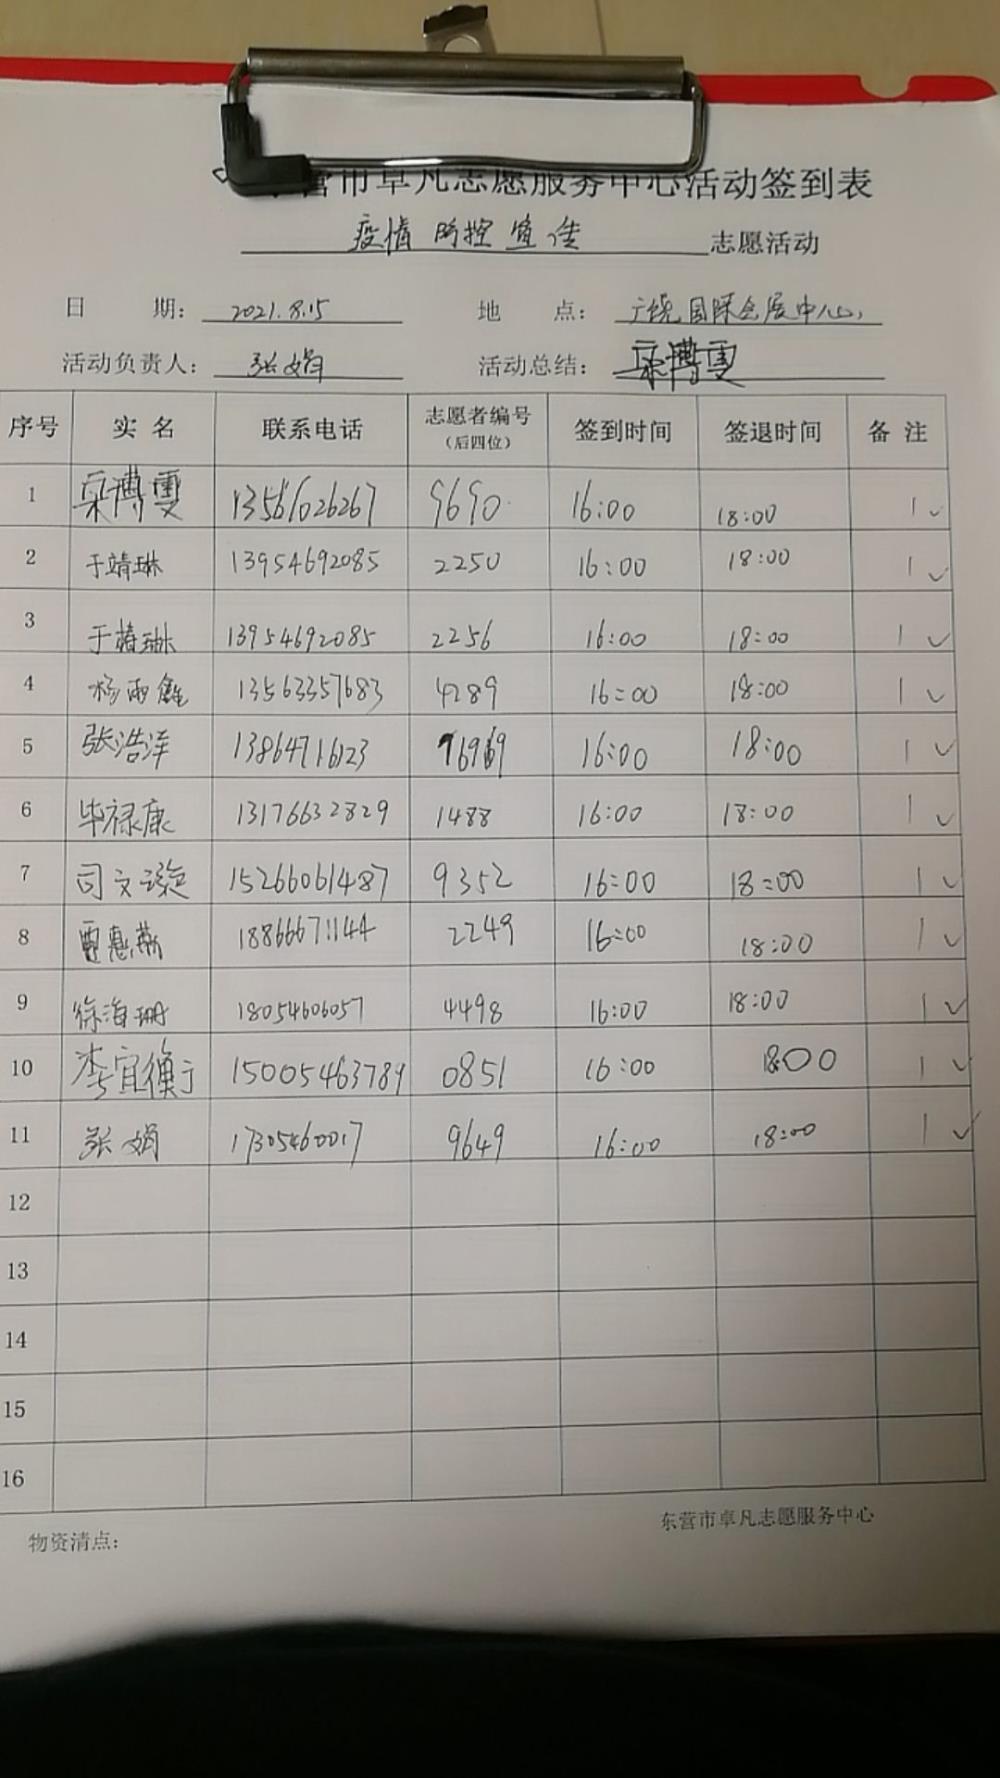 东营市卓凡志愿服务中心活动签到表
疫情防控宣传 志愿活动
日 期: 2021.8.15 地 点: 广饶国际会展中心
活动负责人: 张娟 活动总结: 宋博雯
序号 实 名 联系电话 志愿者编号(后四位) 签到时间 签退时间 备 注
1 宋博雯 13561026267 9690 16:00 18:00 1 ✓
2 于靖琳 13954692085 2250 16:00 18:00 1 ✓
3 于椿琳 13954692085 2256 16:00 18:00 1 ✓
4 杨雨鑫 13563357683 4289 16:00 18:00 1 ✓
5 张浩洋 13864716123 16:00 18:00 1 ✓
6 毕禄康 13176632829 1488 16:00 18:00 1 ✓
7 司文 15266061487 9352 16:00 18:00 1 ✓
8 贾惠燕 18866671144 2249 16:00 18:00 1 ✓
9 徐海珊 18054606057 4498 16:00 18:00 1 ✓
10 李宜衡 15005463789 0851 16:00 18:00 1 ✓
11 张娟 17305460017 9649 16:00 18:00 1 ✓
12
13
14
15
16
物资清点:
东营市卓凡志愿服务中心